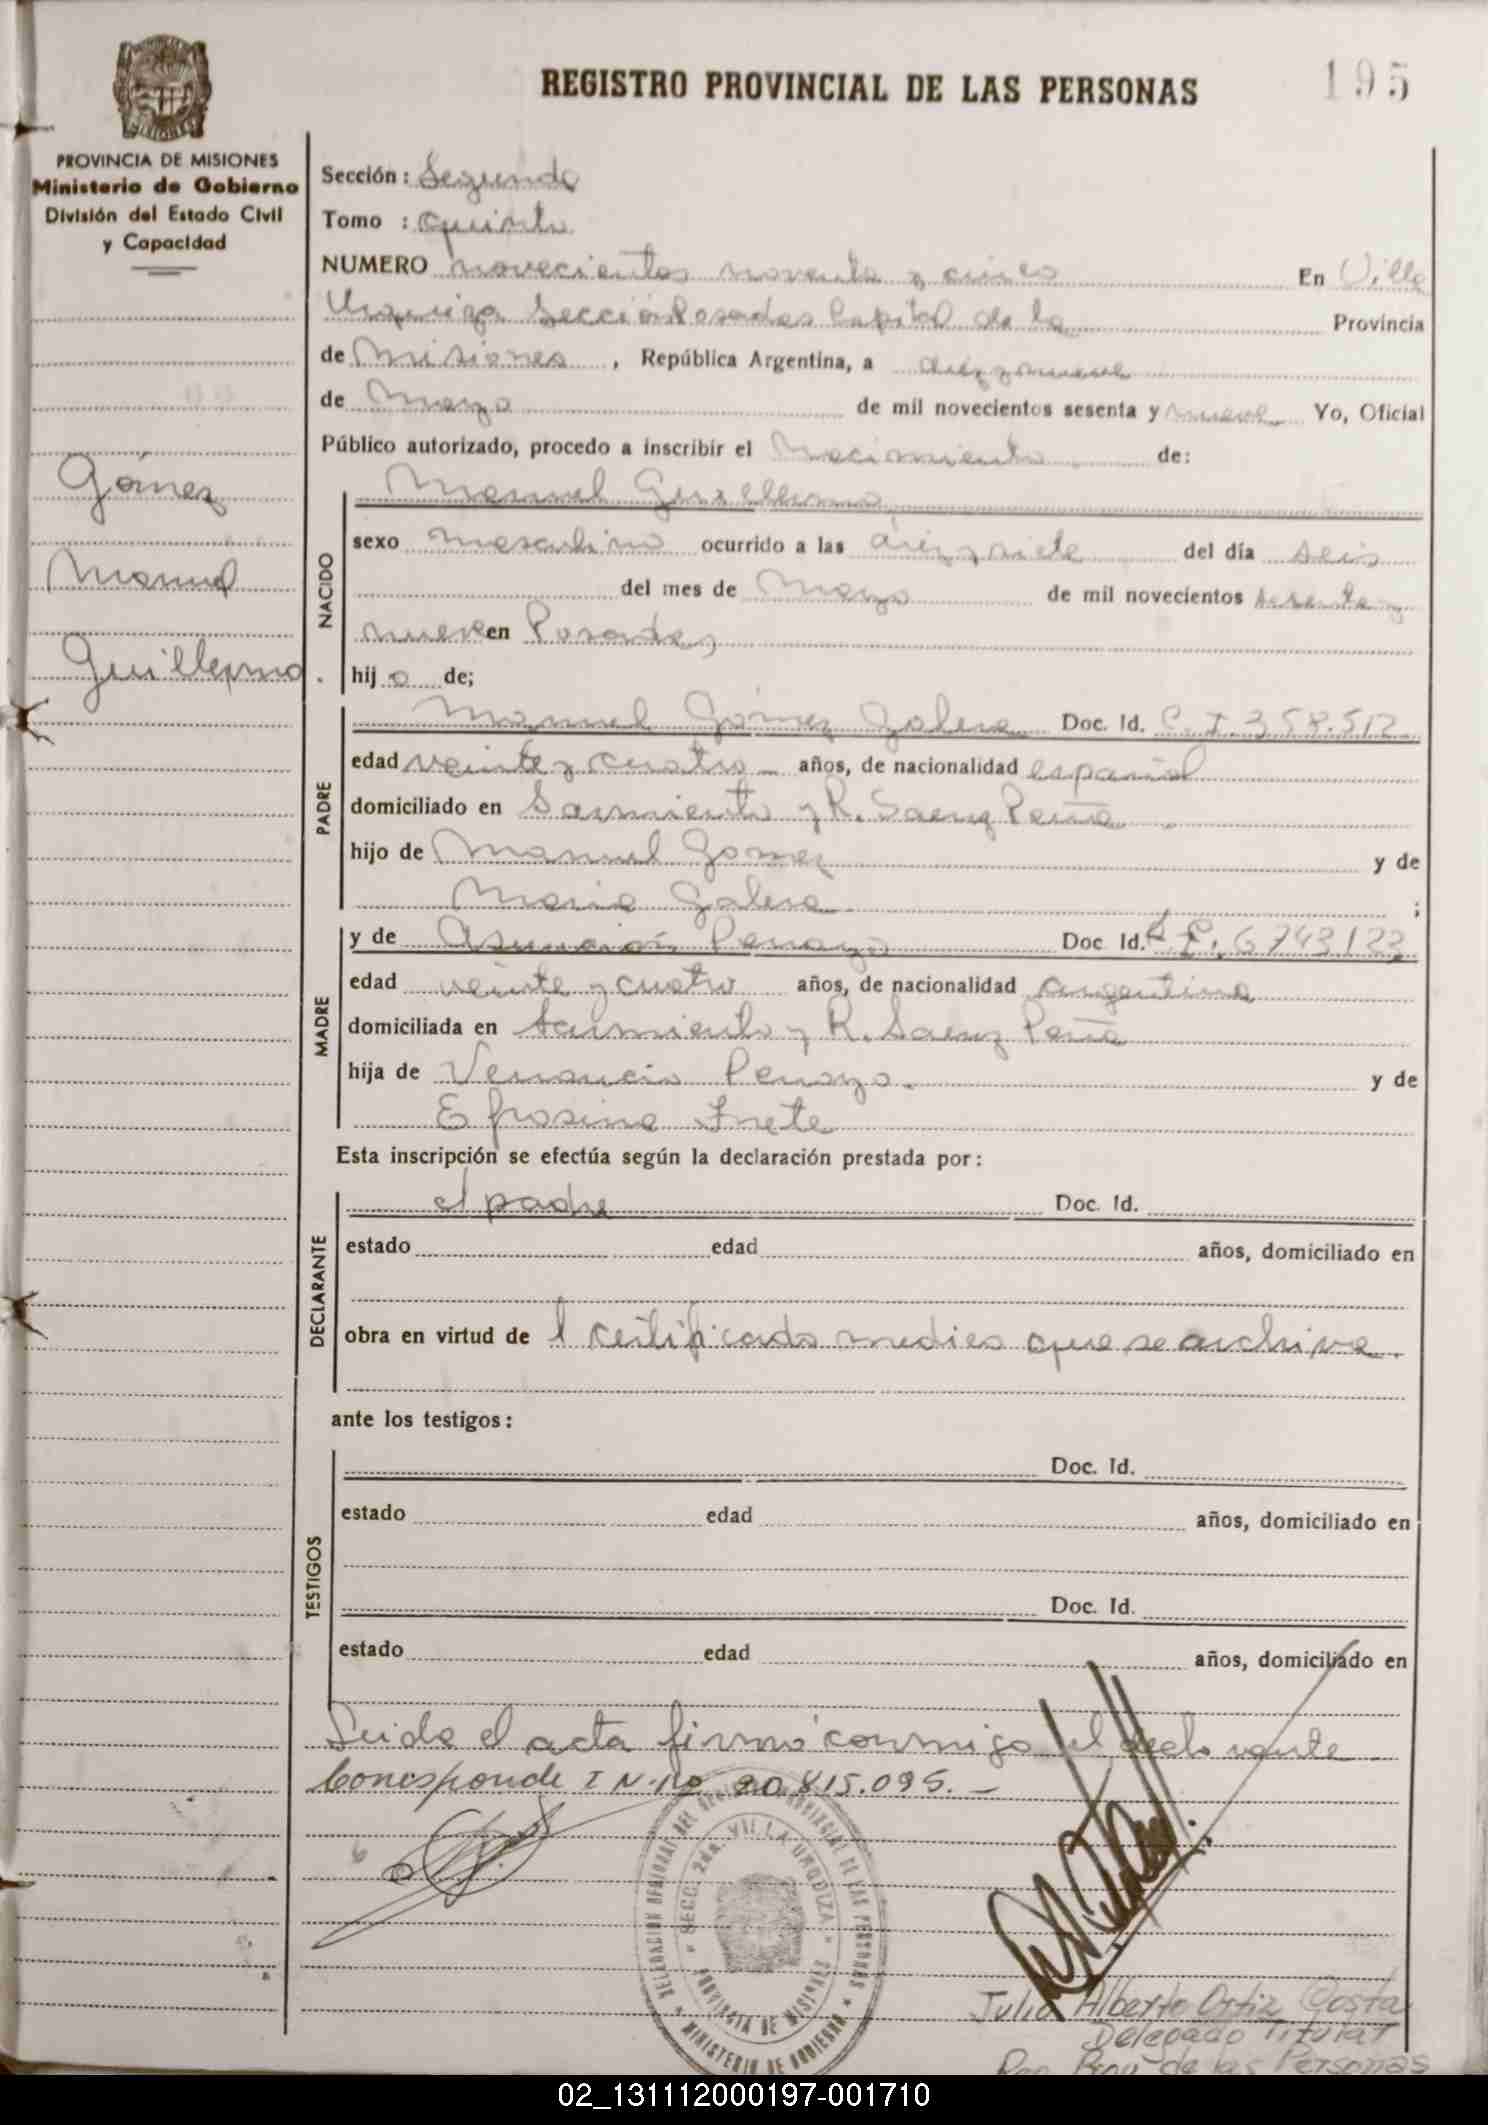 REGISTRO PROVINCIAL DE LAS PERSONAS
195
PROVINCIA DE MISIONES
Ministerio de Gobierno
División del Estado Civil
y Capacidad
Gómez
Manuel
Guillermo
Sección: Segunda
Tomo : Quinto
NUMERO novecientos noventa y cinco En Villa
Urquiza Sección Posadas Capital de la Provincia
de Misiones , República Argentina, a diez y nueve
de Marzo de mil novecientos sesenta y nueve Yo, Oficial
Público autorizado, procedo a inscribir el Nacimiento de:
NACIDO
Manuel Guillermo
sexo masculino ocurrido a las diez y siete del día seis
del mes de Marzo de mil novecientos sesenta y
nueve en Posadas
hij o de;
PADRE
Manuel Gómez Galera Doc. Id. C.I. 358.512
edad veinte y cuatro años, de nacionalidad español
domiciliado en Sarmiento y R. Saenz Peña
hijo de Manuel Gomez y de
Maria Galera ;
MADRE
y de Asunción Penayo Doc Id. L.C. 6743123
edad veinte y cuatro años, de nacionalidad argentina
domiciliada en Sarmiento y R. Saenz Peña
hija de Venancio Penayo. y de
Efrosina Frete
Esta inscripción se efectúa según la declaración prestada por:
DECLARANTE
el padre Doc. Id.
estado edad años, domiciliado en
obra en virtud de l certificado medico que se archiva.
ante los testigos:
TESTIGOS
Doc. Id.
estado edad años, domiciliado en
Doc. Id.
estado edad años, domiciliado en
Leida el acta firmó conmigo el declarante
Corresponde I N. No 20.815.095.-
DELEGACION REGIONAL DEL REGISTRO PROVINCIAL DE LAS PERSONAS
SECC. 2da. VILLA URQUIZA
PROVINCIA DE MISIONES
MINISTERIO DE GOBIERNO
Julio Alberto Ortiz Costa
Delegado Titular
Reg. Prov. de las Personas
02_131112000197-001710